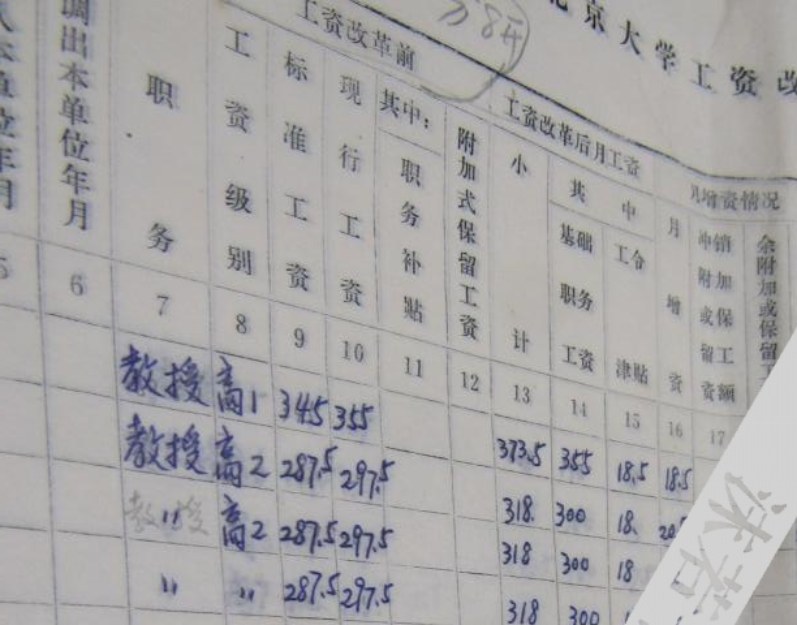 北京大学工资改
工资改革前
工资改革后月工资
月增资情况
调出本单位年月
职务
工资级别
标准工资
现行工资
其中：
职务补贴
附加式保留工资
小计
其中
基础职务工资
工令津贴
月增资
冲销附加或保留工资额
余附加或保留工
5 6 7 8 9 10 11 12 13 14 15 16 17
教授 高1 345 355 373.5 355 18.5 18.5
教授 高2 287.5 297.5 318. 300 18.
教授 〃 高2 287.5 297.5 318 300 18
〃 〃 287.5 297.5 318 300